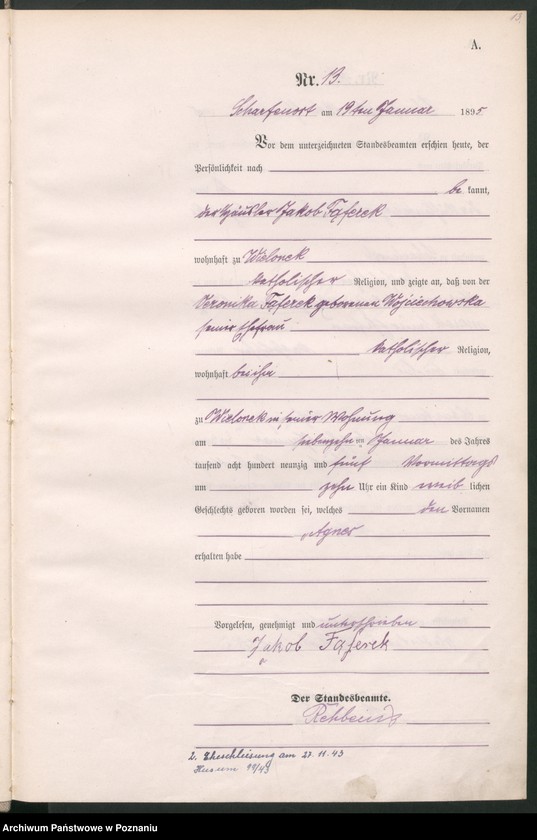 13
A.
Nr. 13.
Scharfenort am 19ten Januar 1895
Vor dem unterzeichneten Standesbeamten erschien heute, der
Persönlichkeit nach
be kannt,
der Häusler Jakob Fąferek
wohnhaft zu Wielonek
katholischer Religion, und zeigte an, daß von der
Veronika Fąferek geborenen Wojciechowska
seiner Ehefrau
katholischer Religion,
wohnhaft bei ihm
zu Wielonek in seiner Wohnung
am siebzehnten Januar des Jahres
tausend acht hundert neunzig und fünf Vormittags
um zehn Uhr ein Kind weib lichen
Geschlechts geboren worden sei, welches den Vornamen
Agnes
erhalten habe
Vorgelesen, genehmigt und unterschrieben
Jakob Fąferek
Der Standesbeamte.
2. Eheschliessung am 27.11.43
Archiwum Państwowe w Poznaniu